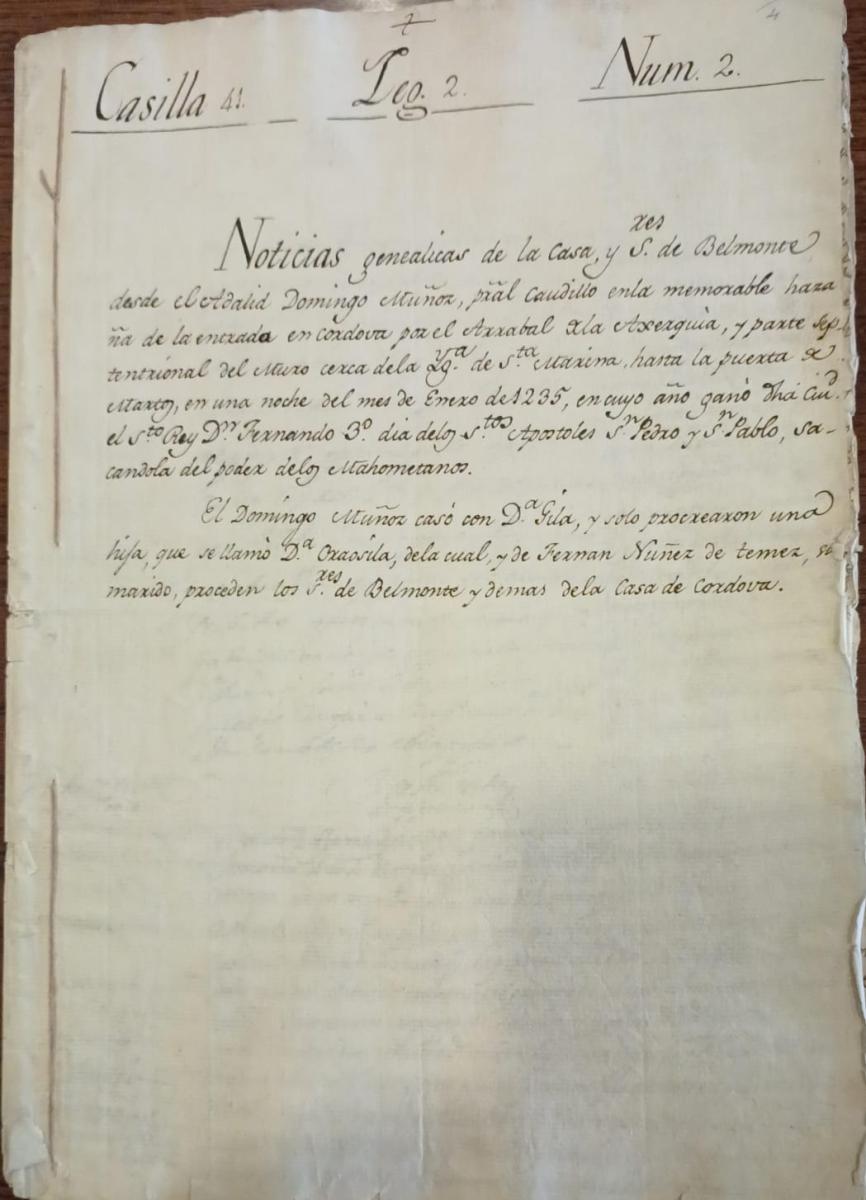 4
Casilla 41. Leg. 2. Num. 2.
Noticias genealicas de la Casa, y S.res de Belmonte
desde el Adalid Domingo Muñoz, prãl Caudillo enla memorable haza
ña de la entrada en Cordova por el Arrabal dla Axerquia, y parte sep
tentrional del Muro cerca dela Ygª de Sta Marina, hasta la puerta de
Martos, en una noche del mes de Enero de 1235, en cuyo año ganò dhã Ciud.
el Sto Rey Dn Fernando 3º dia delos S.tos Apostoles Sn Pedro y Sn Pablo, sa-
candola del poder delos Mahometanos.
El Domingo Muñoz casó con D.ª Gila, y solo procrearon una
hija, que se llamò D.ª Oraosila, dela cual, y de Fernan Nuñez de temez, su
marido, proceden los S.res de Belmonte y demas dela Casa de Cordova.